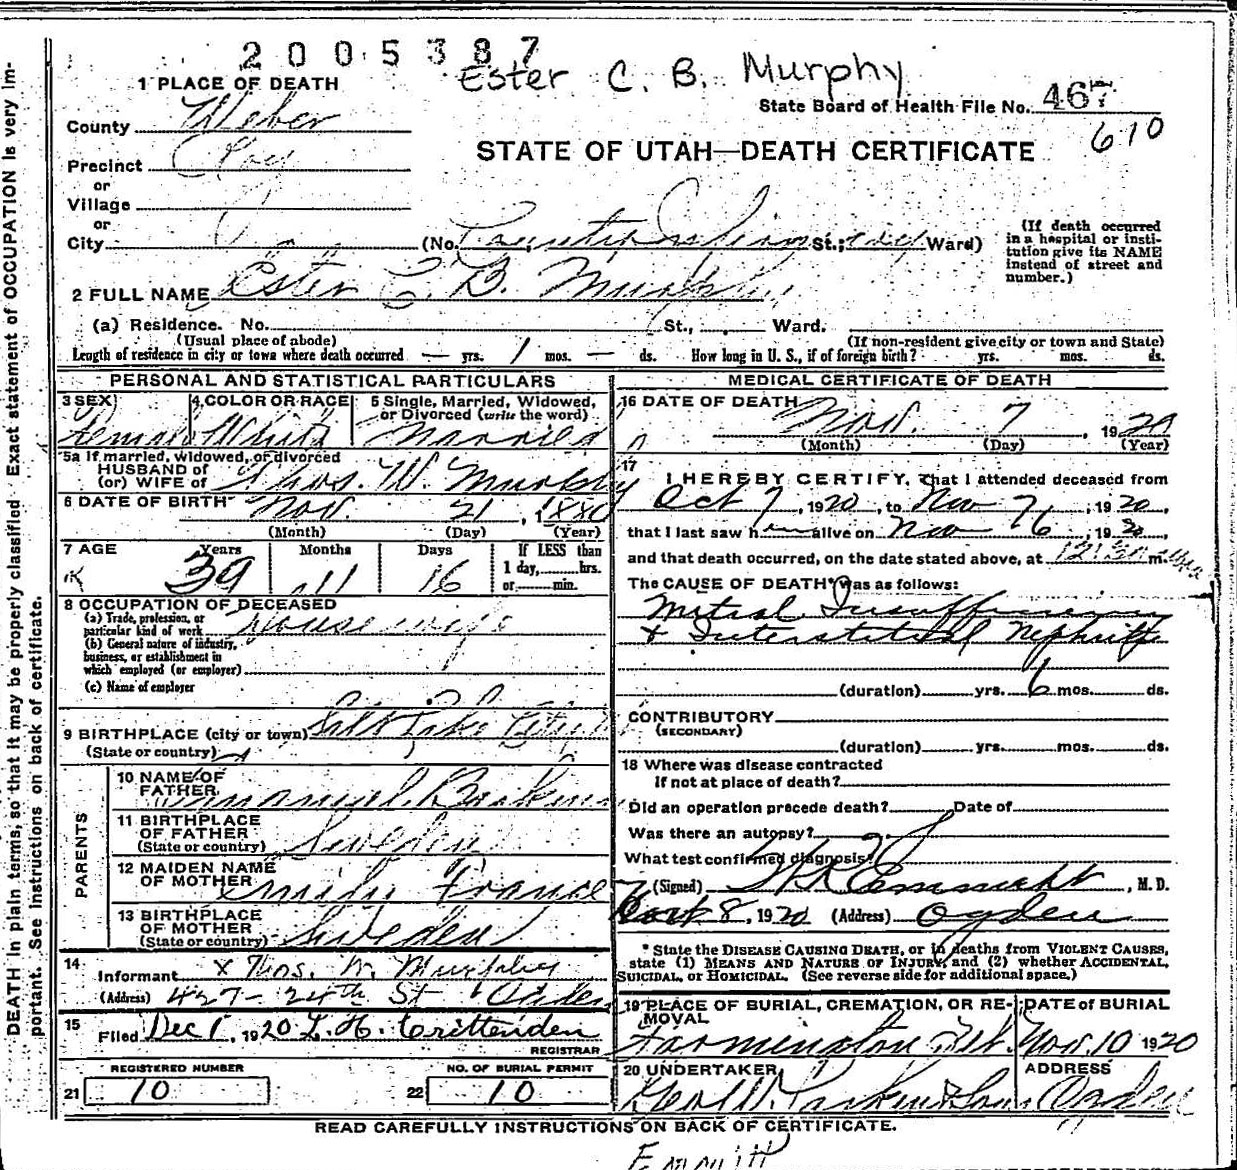 2005387
Ester C. B. Murphy
1 PLACE OF DEATH
State Board of Health File No. 467
610
County Weber
STATE OF UTAH—DEATH CERTIFICATE
Precinct
or
Village
or
City (No. St.; Ward)
(If death occurred in a hospital or institution give its NAME instead of street and number.)
2 FULL NAME Ester C. B. Murphy
(a) Residence. No. St., Ward.
(Usual place of abode) (If non-resident give city or town and State)
Length of residence in city or town where death occurred — yrs. 1 mos. — ds. How long in U. S., if of foreign birth? yrs. mos. ds.
PERSONAL AND STATISTICAL PARTICULARS
3 SEX Female
4 COLOR OR RACE White
5 Single, Married, Widowed, or Divorced (write the word) Married
5a If married, widowed, or divorced
HUSBAND of
(or) WIFE of Thos. W. Murphy
6 DATE OF BIRTH Nov. 21, 1880
(Month) (Day) (Year)
7 AGE Years 39 Months 11 Days 16 If LESS than 1 day, hrs. or min.
8 OCCUPATION OF DECEASED
(a) Trade, profession, or particular kind of work Housewife
(b) General nature of industry, business, or establishment in which employed (or employer)
(c) Name of employer
9 BIRTHPLACE (city or town) Salt Lake City
(State or country)
PARENTS
10 NAME OF FATHER
11 BIRTHPLACE OF FATHER (State or country) Sweden
12 MAIDEN NAME OF MOTHER
13 BIRTHPLACE OF MOTHER (State or country) Sweden
14 Informant x Thos. W. Murphy
(Address) 427-24th St Ogden
15 Filed Dec 1, 1920 L. H. Crittenden
REGISTRAR
REGISTERED NUMBER
21 10
NO. OF BURIAL PERMIT
22 10
MEDICAL CERTIFICATE OF DEATH
16 DATE OF DEATH Nov. 7, 1920
(Month) (Day) (Year)
17
I HEREBY CERTIFY, That I attended deceased from
Oct 7, 1920, to Nov 7, 1920,
that I last saw h alive on Nov 6, 1920,
and that death occurred, on the date stated above, at m.
The CAUSE OF DEATH* was as follows:
Mitral Insufficiency
& Interstitial Nephritis
(duration) yrs. 6 mos. ds.
CONTRIBUTORY
(SECONDARY)
(duration) yrs. mos. ds.
18 Where was disease contracted
if not at place of death?
Did an operation precede death? Date of
Was there an autopsy?
What test confirmed diagnosis?
(Signed) , M. D.
8, 1920 (Address) Ogden
* State the DISEASE CAUSING DEATH, or in deaths from VIOLENT CAUSES, state (1) MEANS AND NATURE OF INJURY, and (2) whether ACCIDENTAL, SUICIDAL, or HOMICIDAL. (See reverse side for additional space.)
19 PLACE OF BURIAL, CREMATION, OR REMOVAL Farmington
DATE of BURIAL Nov. 10 1920
20 UNDERTAKER
ADDRESS Ogden
READ CAREFULLY INSTRUCTIONS ON BACK OF CERTIFICATE.
DEATH in plain terms, so that it may be properly classified. Exact statement of OCCUPATION is very im-
portant. See instructions on back of certificate.